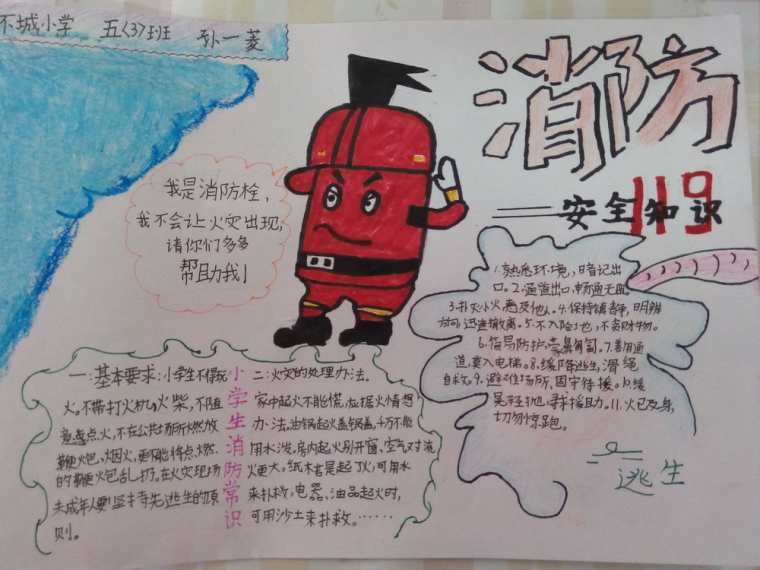 不城小学 五〈3〉班 孙一菱
消防
119
安全知识
我是消防栓，
我不会让火灾出现，
请你们多多
帮助我！
1.熟悉环境，暗记出
口。2.通道出口，畅通无阻
3.扑灭小火，惠及他人。4.保持镇静，明辨
方向，迅速撤离。5.不入险地，不贪财物。
6.简易防护，蒙鼻匍匐。7.善用通
道，莫入电梯。8.缓降逃生，滑绳
自救。9.避难场所，固守待援。10.缓
晃轻抛，寻求援助。11.火已及身，
切勿惊跑。
逃生
小学生消防常识
一、基本要求：小学生不得玩
火。不带打火机，火柴，不随
意点火，不在公共场所燃放
鞭炮、烟火，更不能将点燃
的鞭炮乱扔。在火灾现场
未成年人要坚持先逃生的原
则。
二：火灾的处理办法。
家中起火不能慌，应据火情想
办法，油锅起火盖锅盖，千万不能
用水泼。房内起火别开窗、空气对流
火更大，纸木若是起了火，可用水
来扑救，电器、油品起火时，
可用沙土来扑救。……